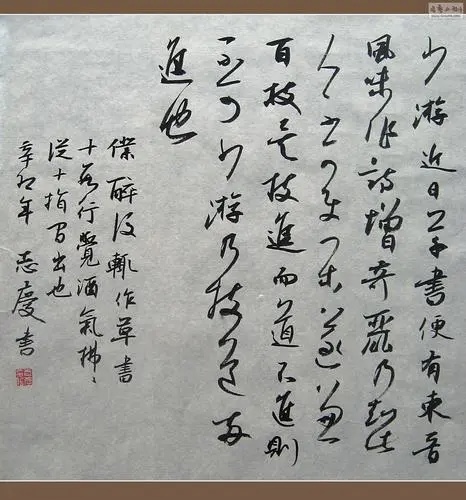 少游近日草書便有東晉
風味作詩增奇麗乃知此
人不可使閒遂兼
百技矣技進而道不進則
不可少游乃技道兩
進也
僕醉後輒作草書
十數行覺酒氣拂〻
從十指間出也
辛卯年 志慶書